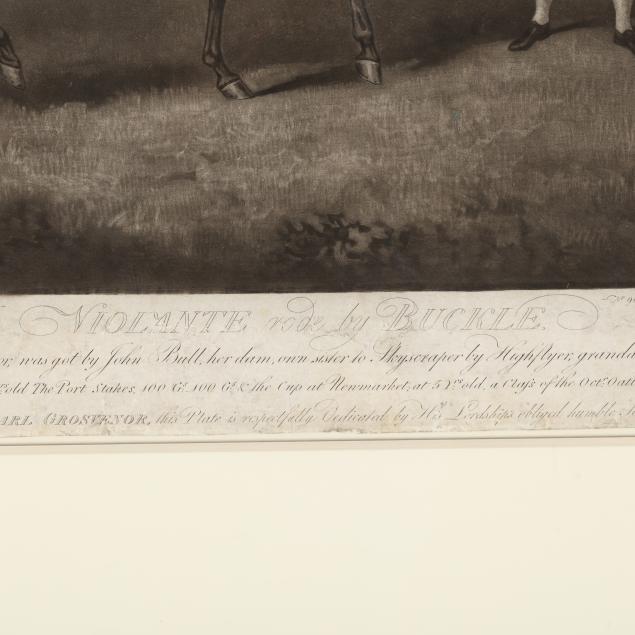 VIOLANTE rode by BUCKLE.
or, was got by John Bull, her dam, own sister to Skyscraper by Highflyer, granda
old The Port Stakes, 100 Gs. 100 Gs. & the Cup at Newmarket, at 5 Yrs. old, a Class of the Octr. Oatl
EARL GROSVENOR, this Plate is respectfully Dedicated by His Lordships obliged humble Se